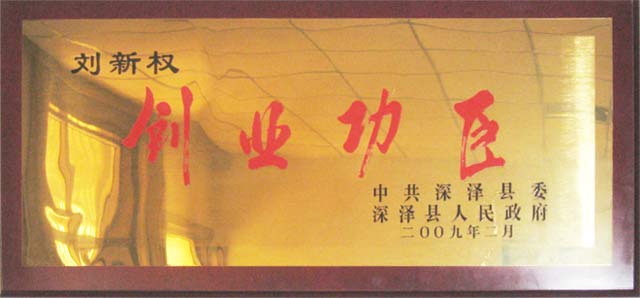 刘新权
创业功臣
中共深泽县委
深泽县人民政府
二〇〇九年二月